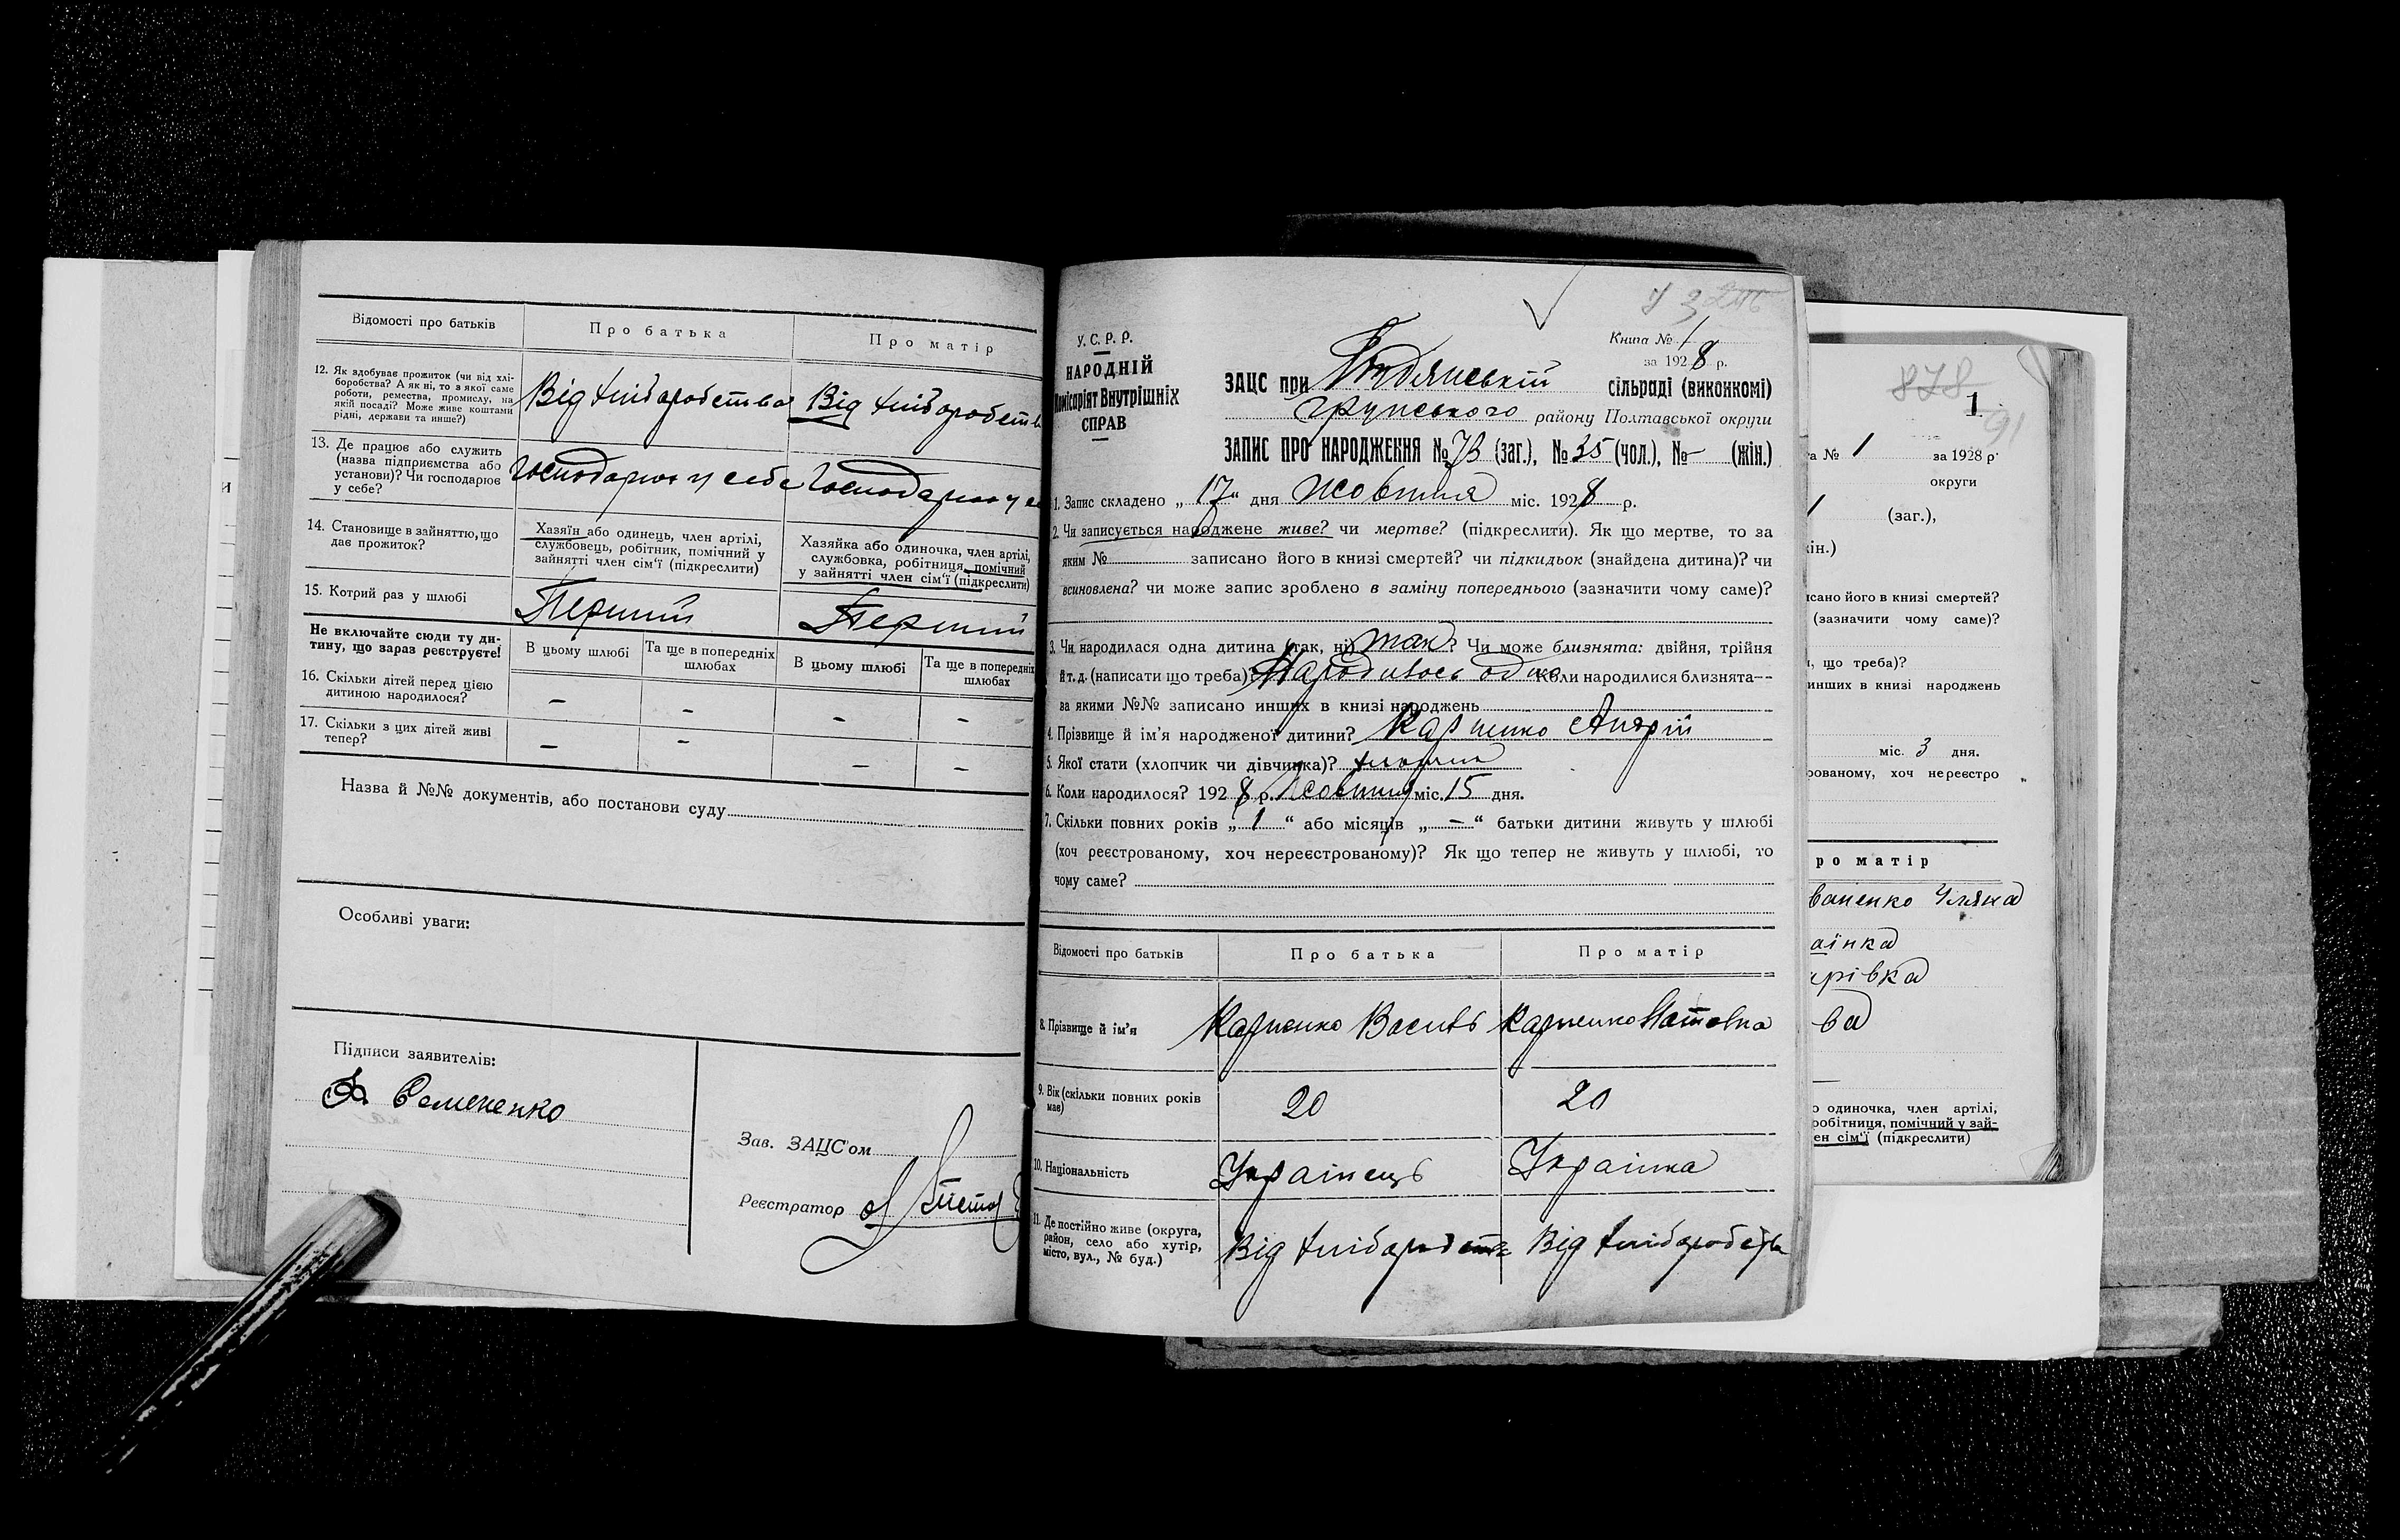 Відомості про батьків
Про батька
Про матір
12. Як здобуває прожиток (чи від хлі-
боробства? А як ні, то з якої саме
роботи, ремества, промислу, на
якій посаді? Може живе коштами
рідні, держави та инше?)
Від хліборобства
Від хліборобств
13. Де працює або служить
(назва підприємства або
установи)? Чи господарює
у себе?
Господарює у себе
Господарює у се
14. Становище в зайняттю, що
дає прожиток?
Хазяїн або одинець, член артілі,
службовець, робітник, помічний у
зайнятті член сім'ї (підкреслити)
Хазяйка або одиночка, член артілі,
службовка, робітниця, помічний
у зайнятті член сім'ї (підкреслити)
15. Котрий раз у шлюбі
Перший
Перший
Не включайте сюди ту ди-
тину, що зараз реєструєте!
В цьому шлюбі
Та ще в попередніх
шлюбах
В цьому шлюбі
Та ще в попередніх
шлюбах
16. Скільки дітей перед цією
дитиною народилося?
– – – –
17. Скільки з цих дітей живі
тепер?
– – – –
Назва й №№ документів, або постанови суду
Особливі уваги:
Підписи заявителів:
Семененко
Зав. ЗАЦС'ом
Реєстратор
У. С. Р. Р.
НАРОДНІЙ
Комісаріят Внутрішніх
СПРАВ
Книга № 1
за 1928 р.
ЗАЦС при сільраді (виконкомі)
Грунського району Полтавської округи
ЗАПИС ПРО НАРОДЖЕННЯ № 73 (заг.), № 35 (чол.), № – (жін.)
1. Запис складено „17" дня Жовтня міс. 1928 р.
2. Чи записується народжене живе? чи мертве? (підкреслити). Як що мертве, то за
яким № записано його в книзі смертей? чи підкидьок (знайдена дитина)? чи
всиновлена? чи може запис зроблено в заміну попереднього (зазначити чому саме)?
3. Чи народилася одна дитина (так, ні) так? Чи може близнята: двійня, трійня
й т. д. (написати що треба)? Народилось одно Коли народилися близнята--
за якими №№ записано инших в книзі народжень
4. Прізвище й ім'я народженої дитини? Карпенко Андрій
5. Якої стати (хлопчик чи дівчинка)? хлопчик
6. Коли народилося? 1928 р. Жовтня міс. 15 дня.
7. Скільки повних років „1" або місяців „–" батьки дитини живуть у шлюбі
(хоч реєстрованому, хоч нереєстрованому)? Як що тепер не живуть у шлюбі, то
чому саме?
Відомості про батьків
Про батька
Про матір
8. Прізвище й ім'я
Карпенко Василь
Карпенко
9. Вік (скільки повних років
має)
20
20
10. Національність
Українець
Українка
11. Де постійно живе (округа,
район, село або хутір,
місто, вул., № буд.)
Від хліборобств
Від хліборобств
878
1.
91
а № 1 за 1928 р.
округи
1 (заг.),
ін.)
исано його в книзі смертей?
(зазначити чому саме)?
, що треба)?
инших в книзі народжень
міс. 3 дня.
рованому, хоч нереєстро
ро матір
ваненко Уляна
аїнка
рівка
ва
о одиночка, член артілі,
робітниця, помічний у зай-
ен сім'ї (підкреслити)